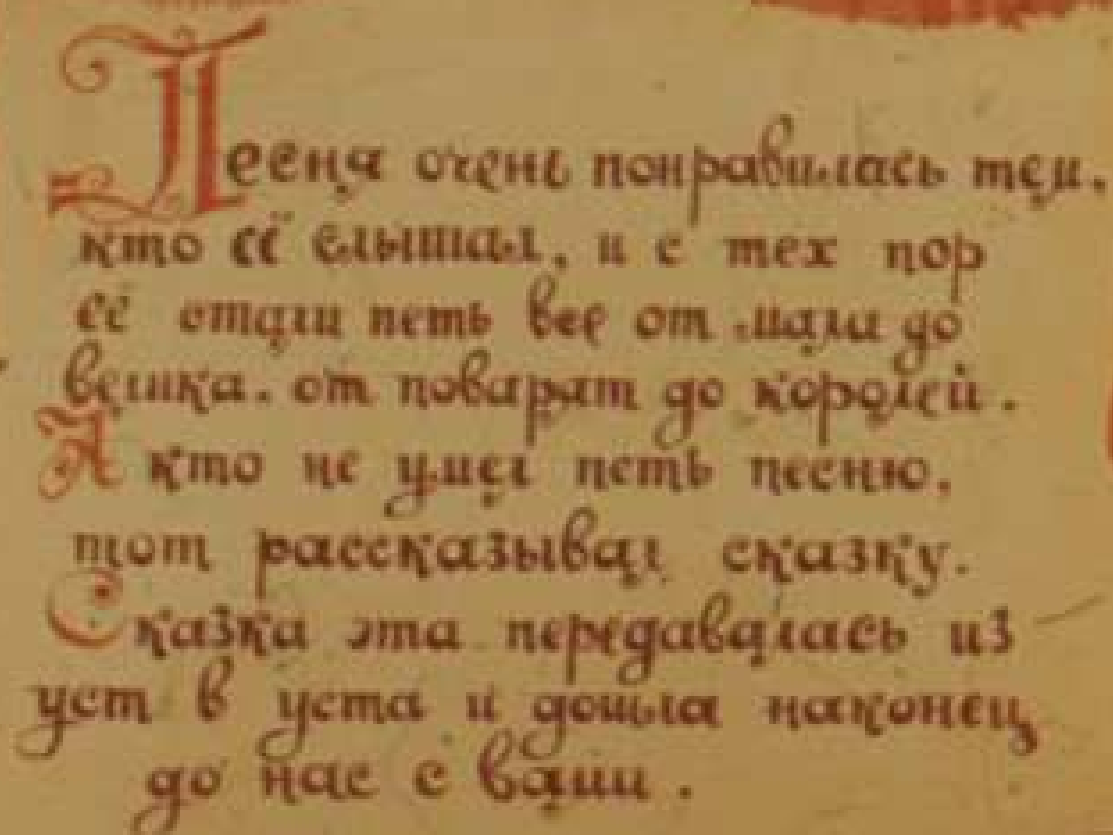 Песня очень понравилась тем,
кто её слышал, и с тех пор
её стали петь все от мала до
велика, от поварят до королей.
А кто не умел петь песню,
тот рассказывал сказку.
Сказка эта передавалась из
уст в уста и дошла наконец
до нас с вами.